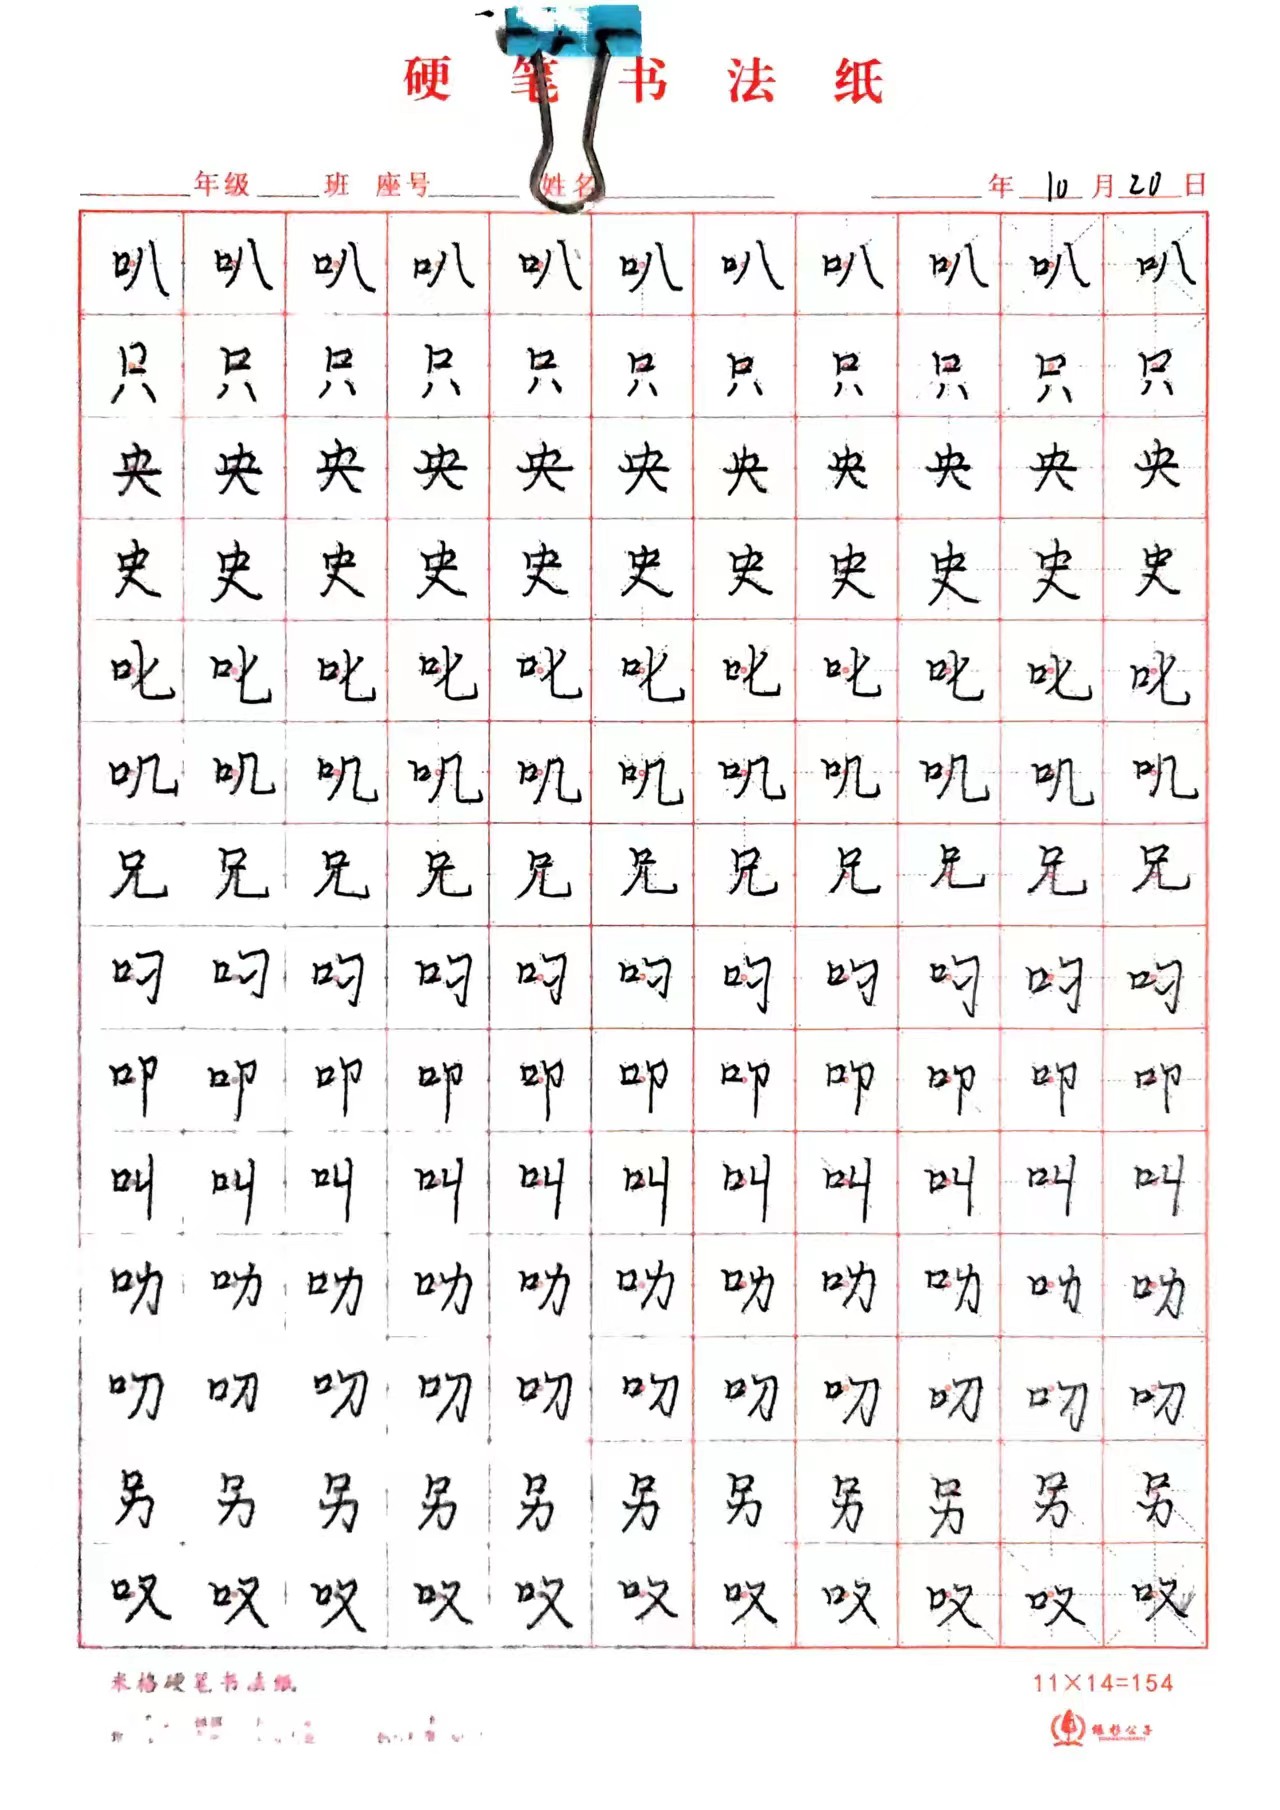 硬笔书法纸
年级 班 座号 姓名 年 10 月 20 日
叭叭叭叭叭叭叭叭叭叭叭
只只只只只只只只只只只
央央央央央央央央央央央
史史史史史史史史史史史
叱叱叱叱叱叱叱叱叱叱叱
叽叽叽叽叽叽叽叽叽叽叽
兄兄兄兄兄兄兄兄兄兄兄
叼叼叼叼叼叼叼叼叼叼叼
叩叩叩叩叩叩叩叩叩叩叩
叫叫叫叫叫叫叫叫叫叫叫
叻叻叻叻叻叻叻叻叻叻叻
叨叨叨叨叨叨叨叨叨叨叨
另另另另另另另另另另另
叹叹叹叹叹叹叹叹叹叹叹
米格硬笔书法纸 11×14=154
绿杉公子